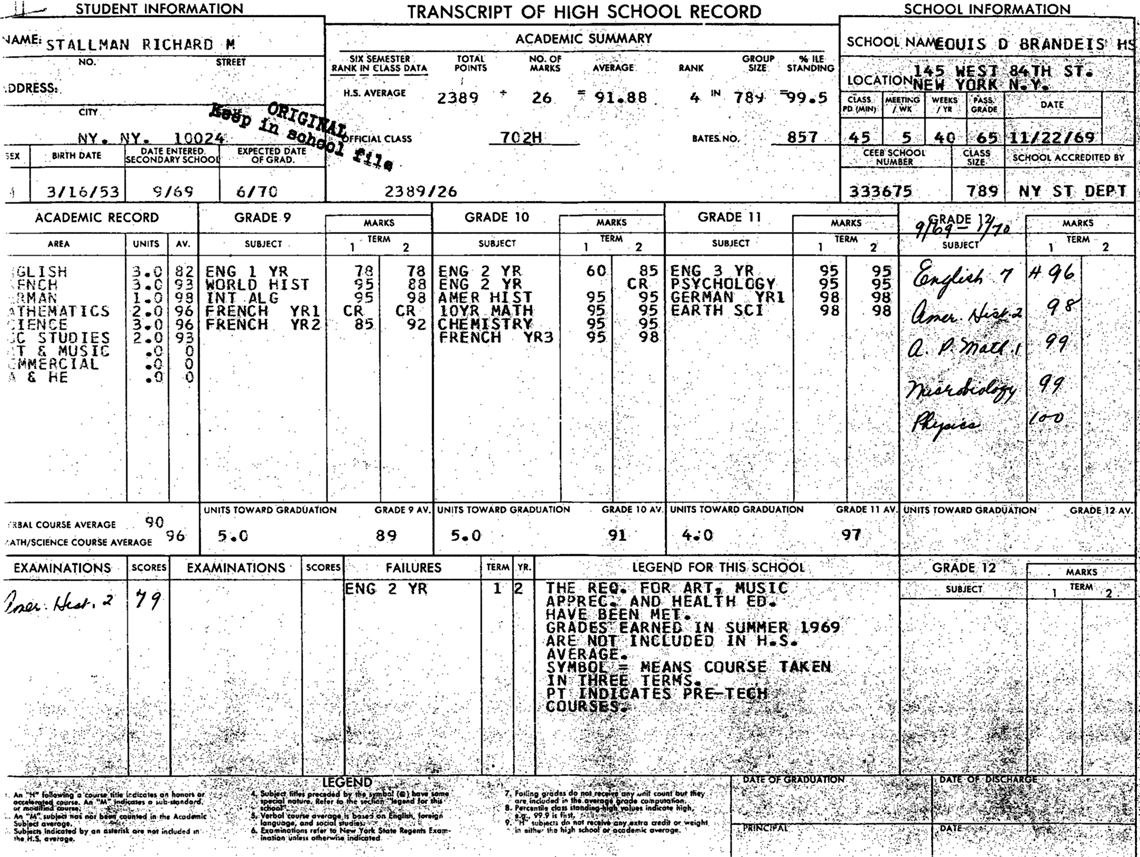 STUDENT INFORMATION
TRANSCRIPT OF HIGH SCHOOL RECORD
SCHOOL INFORMATION
NAME: STALLMAN RICHARD M
NO. STREET
ADDRESS:
CITY
NY. NY. 10024
ORIGINAL
Keep in school file
SEX BIRTH DATE DATE ENTERED SECONDARY SCHOOL EXPECTED DATE OF GRAD.
3/16/53 9/69 6/70
ACADEMIC SUMMARY
SIX SEMESTER RANK IN CLASS DATA TOTAL POINTS NO. OF MARKS AVERAGE RANK GROUP SIZE % ILE STANDING
H.S. AVERAGE 2389 ÷ 26 = 91.88 4 IN 789 =99.5
OFFICIAL CLASS 702H BATES.NO. 857
2389/26
SCHOOL NAME OUIS D BRANDEIS HS
LOCATION 145 WEST 84TH ST.
NEW YORK N.Y.
CLASS PD (MIN) MEETING / WK WEEKS / YR PASS. GRADE DATE
45 5 40 65 11/22/69
CEEB SCHOOL NUMBER CLASS SIZE SCHOOL ACCREDITED BY
333675 789 NY ST DEPT
ACADEMIC RECORD
AREA UNITS AV.
GLISH 3.0 82
ENCH 3.0 93
RMAN 1.0 98
ATHEMATICS 2.0 96
IENCE 3.0 96
C STUDIES 2.0 93
T & MUSIC .0 0
MMERCIAL .0 0
A & HE .0 0
GRADE 9 MARKS
SUBJECT TERM 1 2
ENG 1 YR 78 78
WORLD HIST 95 88
INT ALG 95 98
FRENCH YR1 CR CR
FRENCH YR2 85 92
GRADE 10 MARKS
SUBJECT TERM 1 2
ENG 2 YR 60 85
ENG 2 YR CR
AMER HIST 95 95
10YR MATH 95 95
CHEMISTRY 95 95
FRENCH YR3 95 98
GRADE 11 MARKS
SUBJECT TERM 1 2
ENG 3 YR 95 95
PSYCHOLOGY 95 95
GERMAN YR1 98 98
EARTH SCI 98 98
GRADE 12 MARKS
9/69 - 1/70
SUBJECT TERM 1 2
English 7 H 96
Amer. Hist. 2 98
A. P. Math. 1 99
Microbiology 99
Physics 100
RBAL COURSE AVERAGE 90
ATH/SCIENCE COURSE AVERAGE 96
UNITS TOWARD GRADUATION GRADE 9 AV.
5.0 89
UNITS TOWARD GRADUATION GRADE 10 AV.
5.0 91
UNITS TOWARD GRADUATION GRADE 11 AV.
4.0 97
UNITS TOWARD GRADUATION GRADE 12 AV.
EXAMINATIONS SCORES EXAMINATIONS SCORES
Amer. Hist. 2 79
FAILURES TERM YR.
ENG 2 YR 1 2
LEGEND FOR THIS SCHOOL
THE REQ. FOR ART, MUSIC
APPREC. AND HEALTH ED.
HAVE BEEN MET.
GRADES EARNED IN SUMMER 1969
ARE NOT INCLUDED IN H.S.
AVERAGE.
SYMBOL = MEANS COURSE TAKEN
IN THREE TERMS.
PT INDICATES PRE-TECH
COURSES.
GRADE 12 MARKS
SUBJECT TERM 1 2
LEGEND
An "H" following a course title indicates an honors or
accelerated course. An "M" indicates a sub-standard,
or modified course.
An "M" subject has not been counted in the Academic
Subject average.
Subjects indicated by an asterisk are not included in
the H.S. average.
4. Subject titles preceded by the symbol (@) have some
special nature. Refer to the section "legend for this
school"
5. Verbal course average is based on English, foreign
language, and social studies.
6. Examinations refer to New York State Regents Exam-
ination unless otherwise indicated.
7. Failing grades do not receive any unit count but they
are included in the average grade computation.
8. Percentile class standing-high values indicate high,
e.g., 99.9 is first.
9. "H" subjects do not receive any extra credit or weight
in either the high school or academic average.
DATE OF GRADUATION DATE OF DISCHARGE
PRINCIPAL DATE